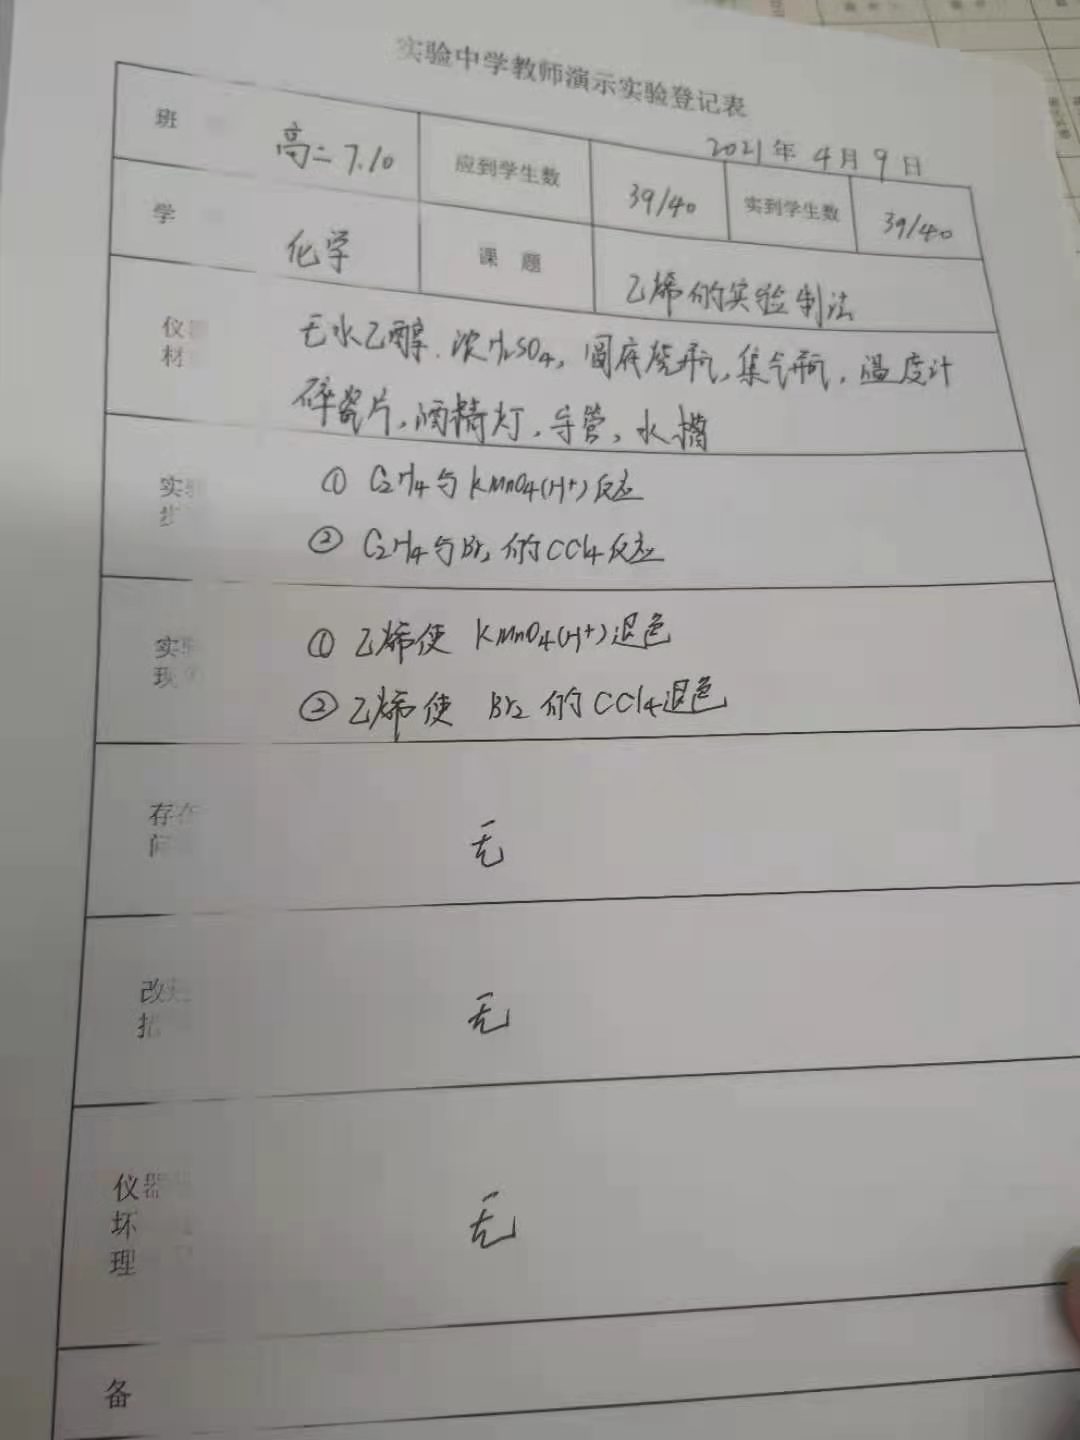 实验中学教师演示实验登记表
2021年4月9日
班 高二7.10 应到学生数 39/40 实到学生数 39/40
学 化学 课题 乙烯的实验制法
仪器 无水乙醇.浓H2SO4,圆底烧瓶,集气瓶,温度计
材 碎瓷片,酒精灯,导管,水槽
实验 ①C2H4与KMnO4(H+)反应
②C2H4与Br2的CCl4反应
实验 ①乙烯使KMnO4(H+)退色
现 ②乙烯使Br2的CCl4退色
存在
问
无
改
措
无
仪器
坏
理
无
备